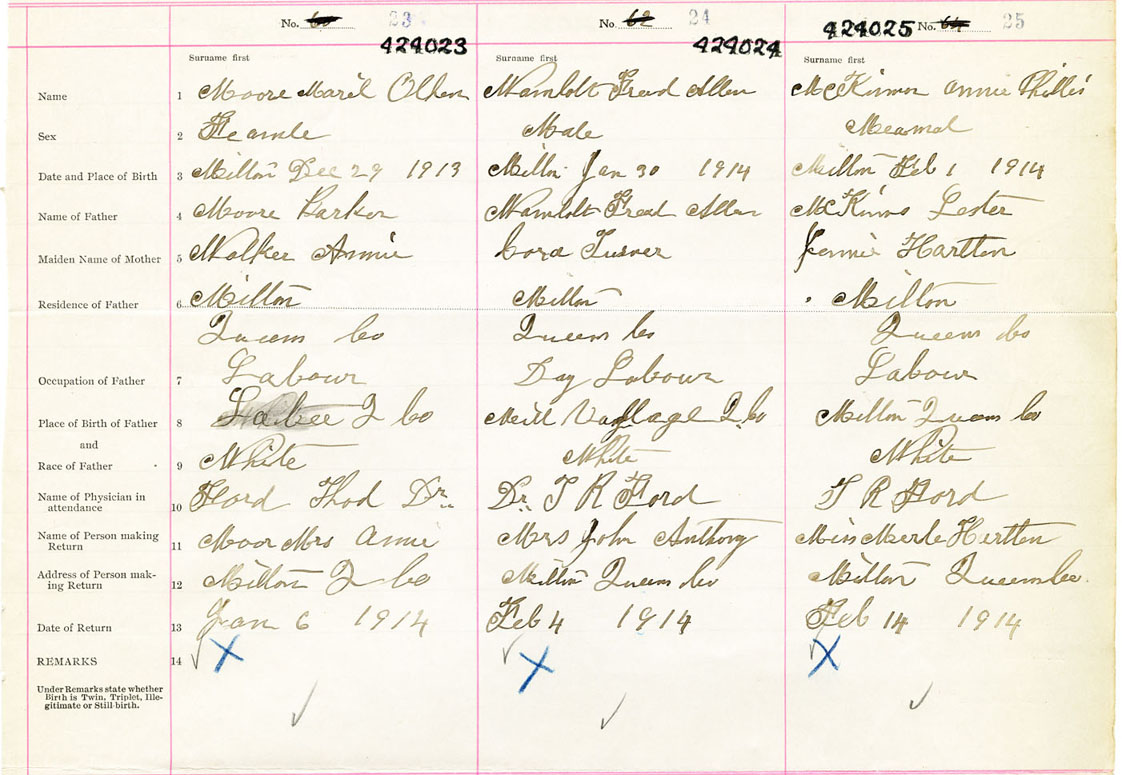 No. 60 23 No. 62 24 No. 64 25
424023 424024 424025
Surname first Surname first Surname first
Name 1 Moore Marel Olken Wamloldt Fread Allen McKinnon Annie Phillis
Sex 2 Feamle Male Meamal
Date and Place of Birth 3 Milton Dec 29 1913 Milton Jan 30 1914 Milton Feb 1 1914
Name of Father 4 Moore Parker Wamloldt Fread Allen McKinns Lester
Maiden Name of Mother 5 Walker Annie Cora Turner Jennie Hartten
Residence of Father 6 Milton Milton Milton
Queens Co Queens Co Queens Co
Occupation of Father 7 Labour Day Labour Labour
Place of Birth of Father 8 Q Co Mill Q Co Milton Queens Co
and
Race of Father 9 White White White
Name of Physician in
attendance 10 Ford Thod Dr. Dr. T R Ford T R Ford
Name of Person making
Return 11 Moor Mrs Annie Mrs John Anthony Miss Merle Hertten
Address of Person mak-
ing Return 12 Milton Q Co Milton Queens Co Milton Queens Co.
Date of Return 13 Jan 6 1914 Feb 4 1914 Feb 14 1914
REMARKS 14
Under Remarks state whether
Birth is Twin, Triplet, Ille-
gitimate or Still-birth.